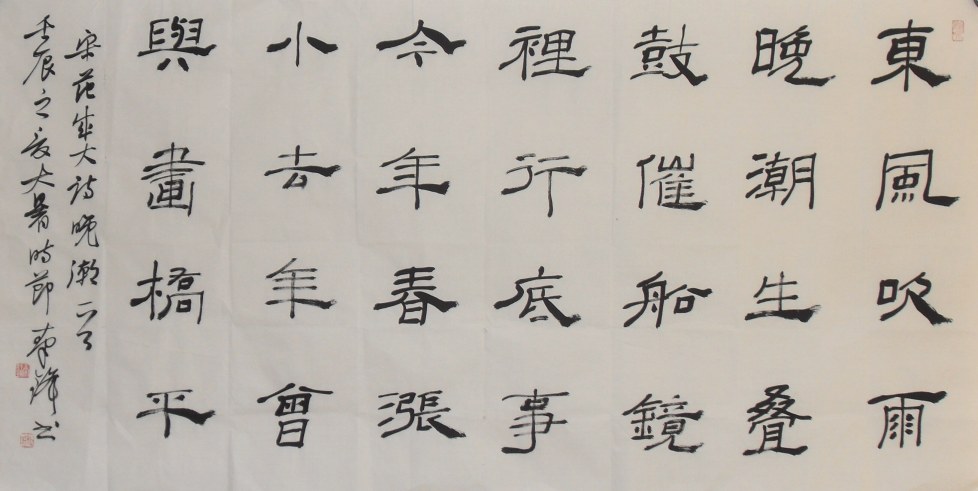 東風吹雨
晚潮生叠
鼓催船鏡
裡行底事
今年春漲
小去年曾
與畫橋平
宋范成大诗晚潮一首
壬辰之夏大暑时節书